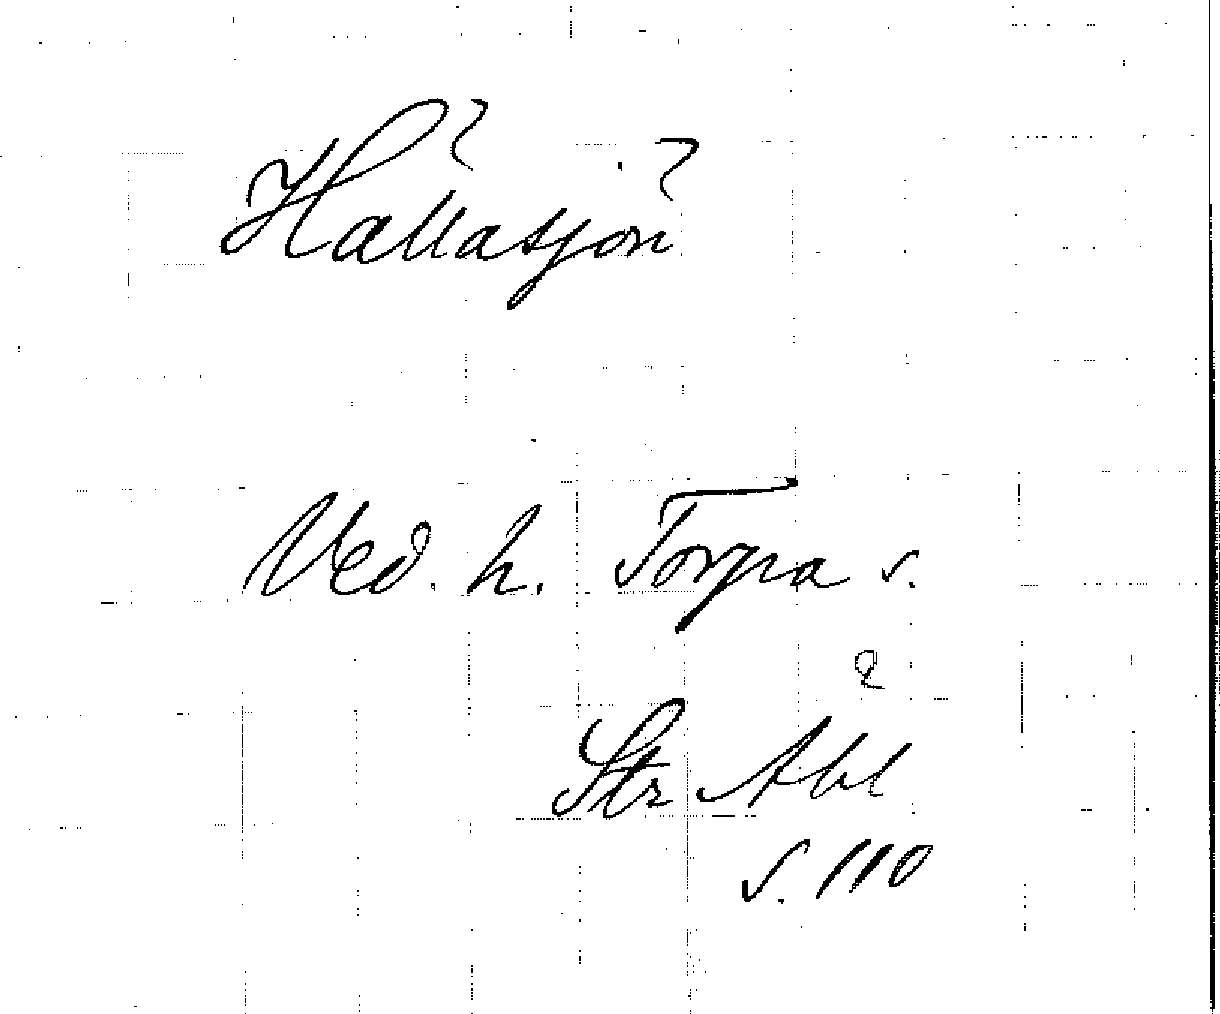 Hållasjön
Ved. h. Torpa s.
Str Åbl
s. 110